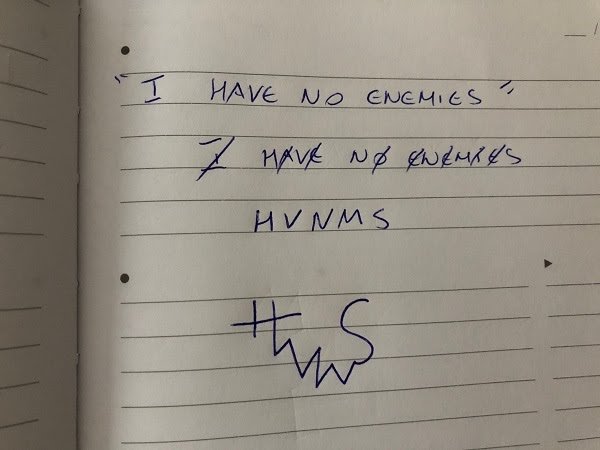 "I HAVE NO ENEMIES"
I HAVE NO ENEMIES
HVNMS